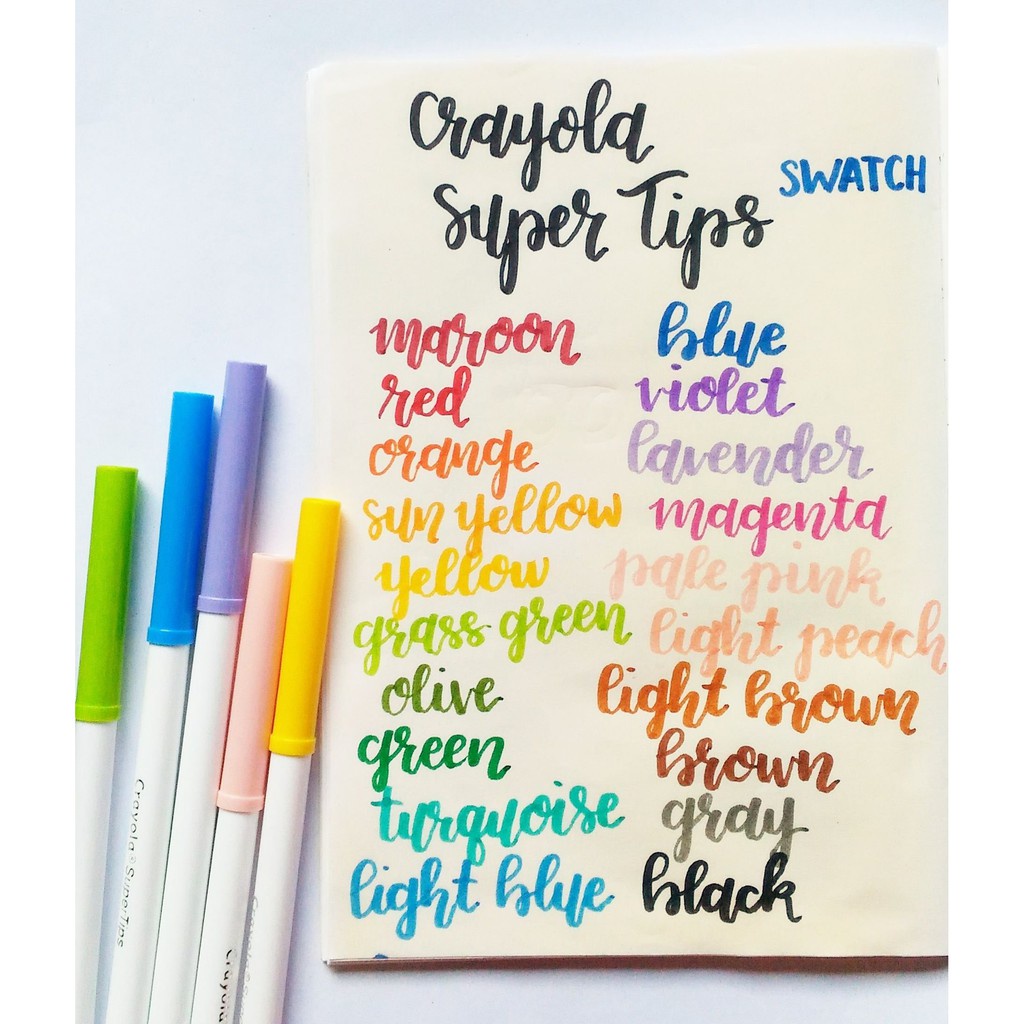 Crayola
Super Tips
SWATCH
maroon
red
orange
sun yellow
yellow
grass green
olive
green
turquoise
light blue
blue
violet
lavender
magenta
pale pink
light peach
light brown
brown
gray
black
Crayola® SuperTips
Crayola
Crayola